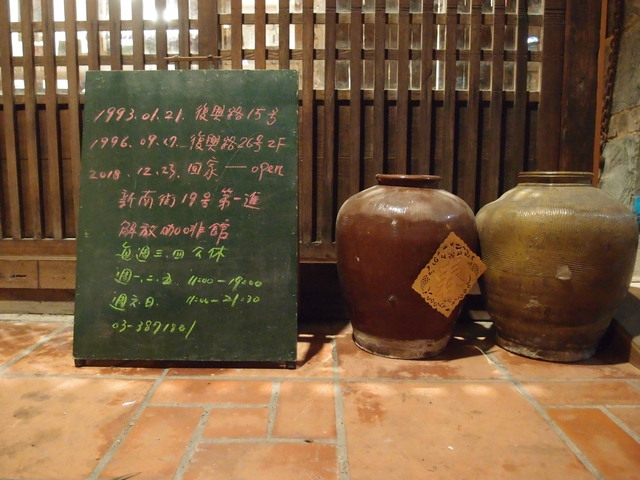 1993.01.21. 復興路15号
1996.09.17. 復興路26号2F
2018.12.23. 回家 — open
新南街19号第一進
解放咖啡館
每週三.四 公休
週一.二.五. 11:00-19:00
週六.日. 11:00-21:30
03-3871801